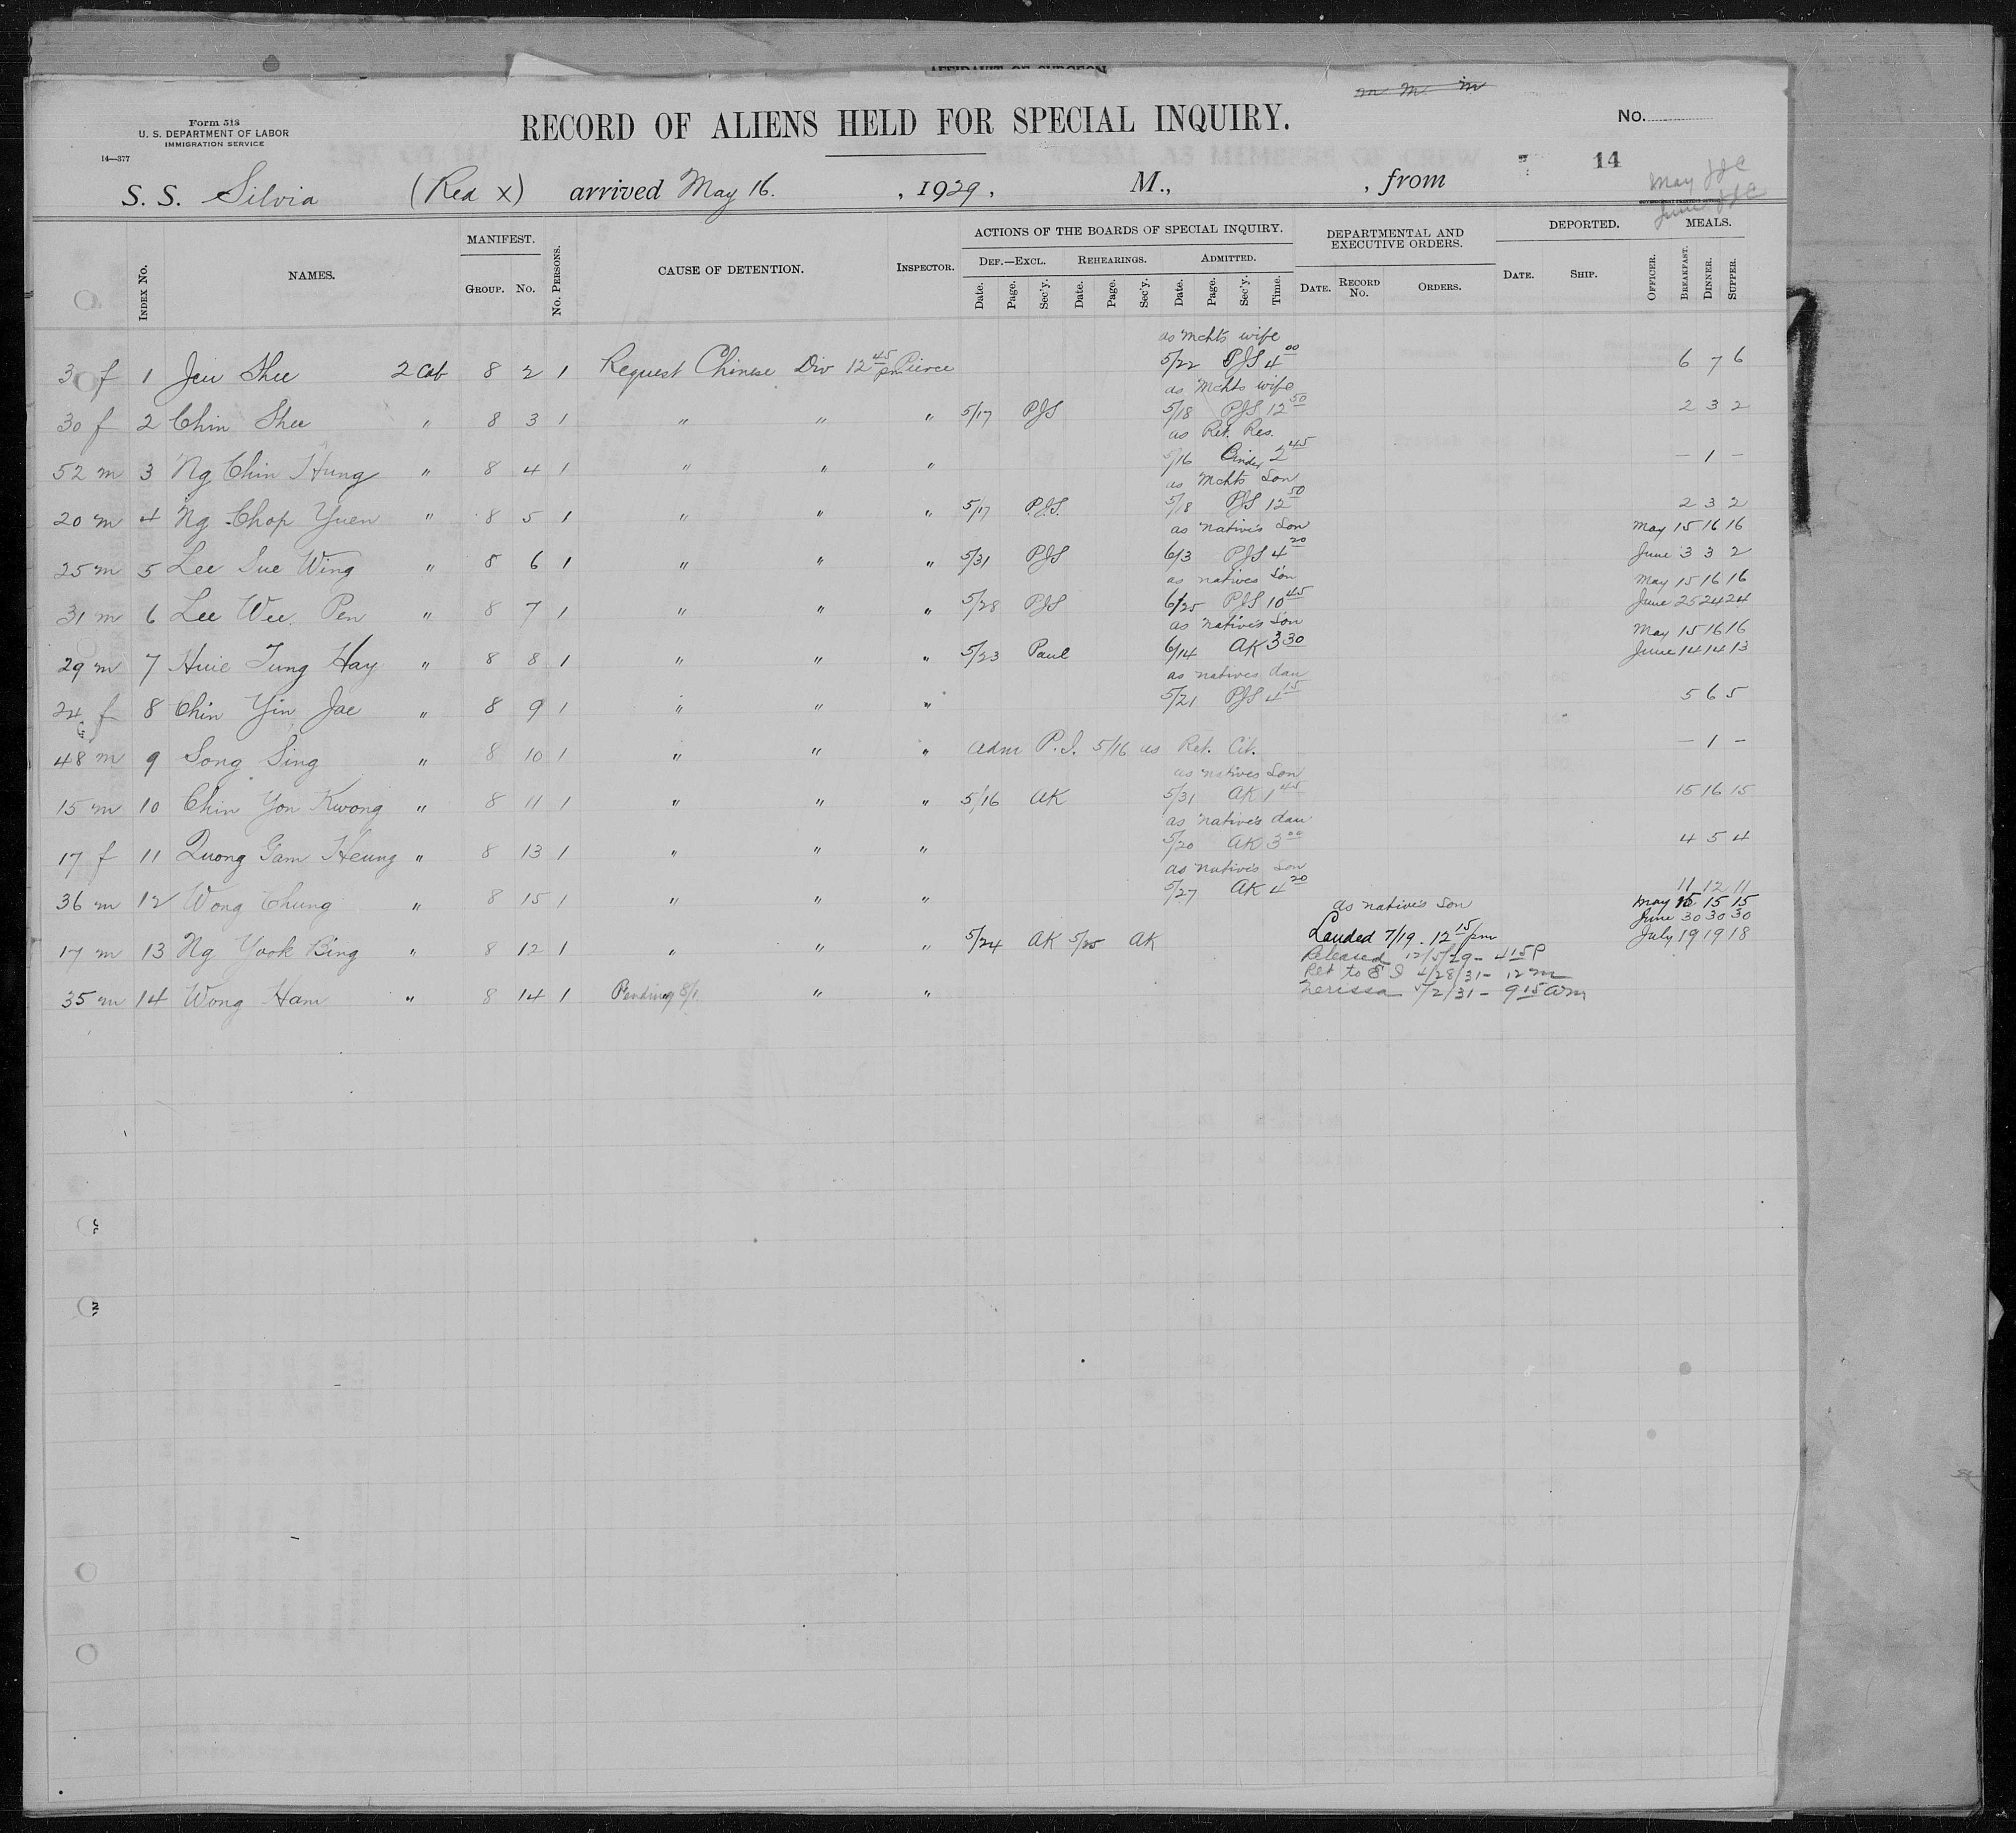 Form 518
U. S. DEPARTMENT OF LABOR
IMMIGRATION SERVICE
14—377
RECORD OF ALIENS HELD FOR SPECIAL INQUIRY.
No.
14
May JJC
June JJC
S. S. Silvia (Red X) arrived May 16. , 1929, M., , from
INDEX No. NAMES. MANIFEST. GROUP. No. No. PERSONS. CAUSE OF DETENTION. INSPECTOR. ACTIONS OF THE BOARDS OF SPECIAL INQUIRY. DEF.—EXCL. Date. Page. Sec'y. REHEARINGS. Date. Page. Sec'y. ADMITTED. Date. Page. Sec'y. Time. DEPARTMENTAL AND EXECUTIVE ORDERS. DATE. RECORD No. ORDERS. DEPORTED. DATE. SHIP. OFFICER. MEALS. BREAKFAST. DINNER. SUPPER.
as mchts wife
30 f 1 Jeu Shee 2 Cab 8 2 1 Request Chinese Div 12 45 pm Pierce 5/22 PJS 4 00 6 7 6
as Mchts wife
30 f 2 Chin Shee " 8 3 1 " " " 5/17 PJS 5/18 PJS 12 50 2 3 2
as Ret. Res.
52 m 3 Ng Chin Hung " 8 4 1 " " " 5/16 2 45 – 1 –
as Mchts Son
20 m 4 Ng Chop Yuen " 8 5 1 " " " 5/17 P.J.S. 5/18 PJS 12 50 2 3 2
as native's Son May 15 16 16
25 m 5 Lee Sue Wing " 8 6 1 " " " 5/31 PJS 6/3 PJS 4 20 June 3 3 2
as natives Son May 15 16 16
31 m 6 Lee Wee Pen " 8 7 1 " " " 5/28 PJS 6/25 PJS 10 45 June 25 24 24
as native's Son May 15 16 16
29 m 7 Huie Tung Hay " 8 8 1 " " " 5/23 Paul 6/14 AK 3 30 June 14 14 13
as natives dau
24 f 8 Chin Yin Jae " 8 9 1 " " " 5/21 PJS 4 15 5 6 5
48 m 9 Song Sing " 8 10 1 " " " Adm P.I. 5/16 as Ret. Cit. – 1 –
as natives Son
15 m 10 Chin Yon Kwong " 8 11 1 " " " 5/16 AK 5/31 AK 1 45 15 16 15
as native's dau
17 f 11 Quong Gam Heung " 8 13 1 " " " 5/20 AK 3 00 4 5 4
as native's son
36 m 12 Wong Chung " 8 15 1 " " " 5/27 AK 4 20 11 12 11
as native's son May 15 15 15
June 30 30 30
17 m 13 Ng Yook Bing " 8 12 1 " " " 5/24 AK 5/25 AK Landed 7/19. 12 15 pm July 19 19 18
Released 12/5/29 – 4 15 P
Ret to E I 4/28/31 – 12 m
35 m 14 Wong Ham " 8 14 1 Pending 8/1 " " Nerissa 5/2/31 – 9 15 am